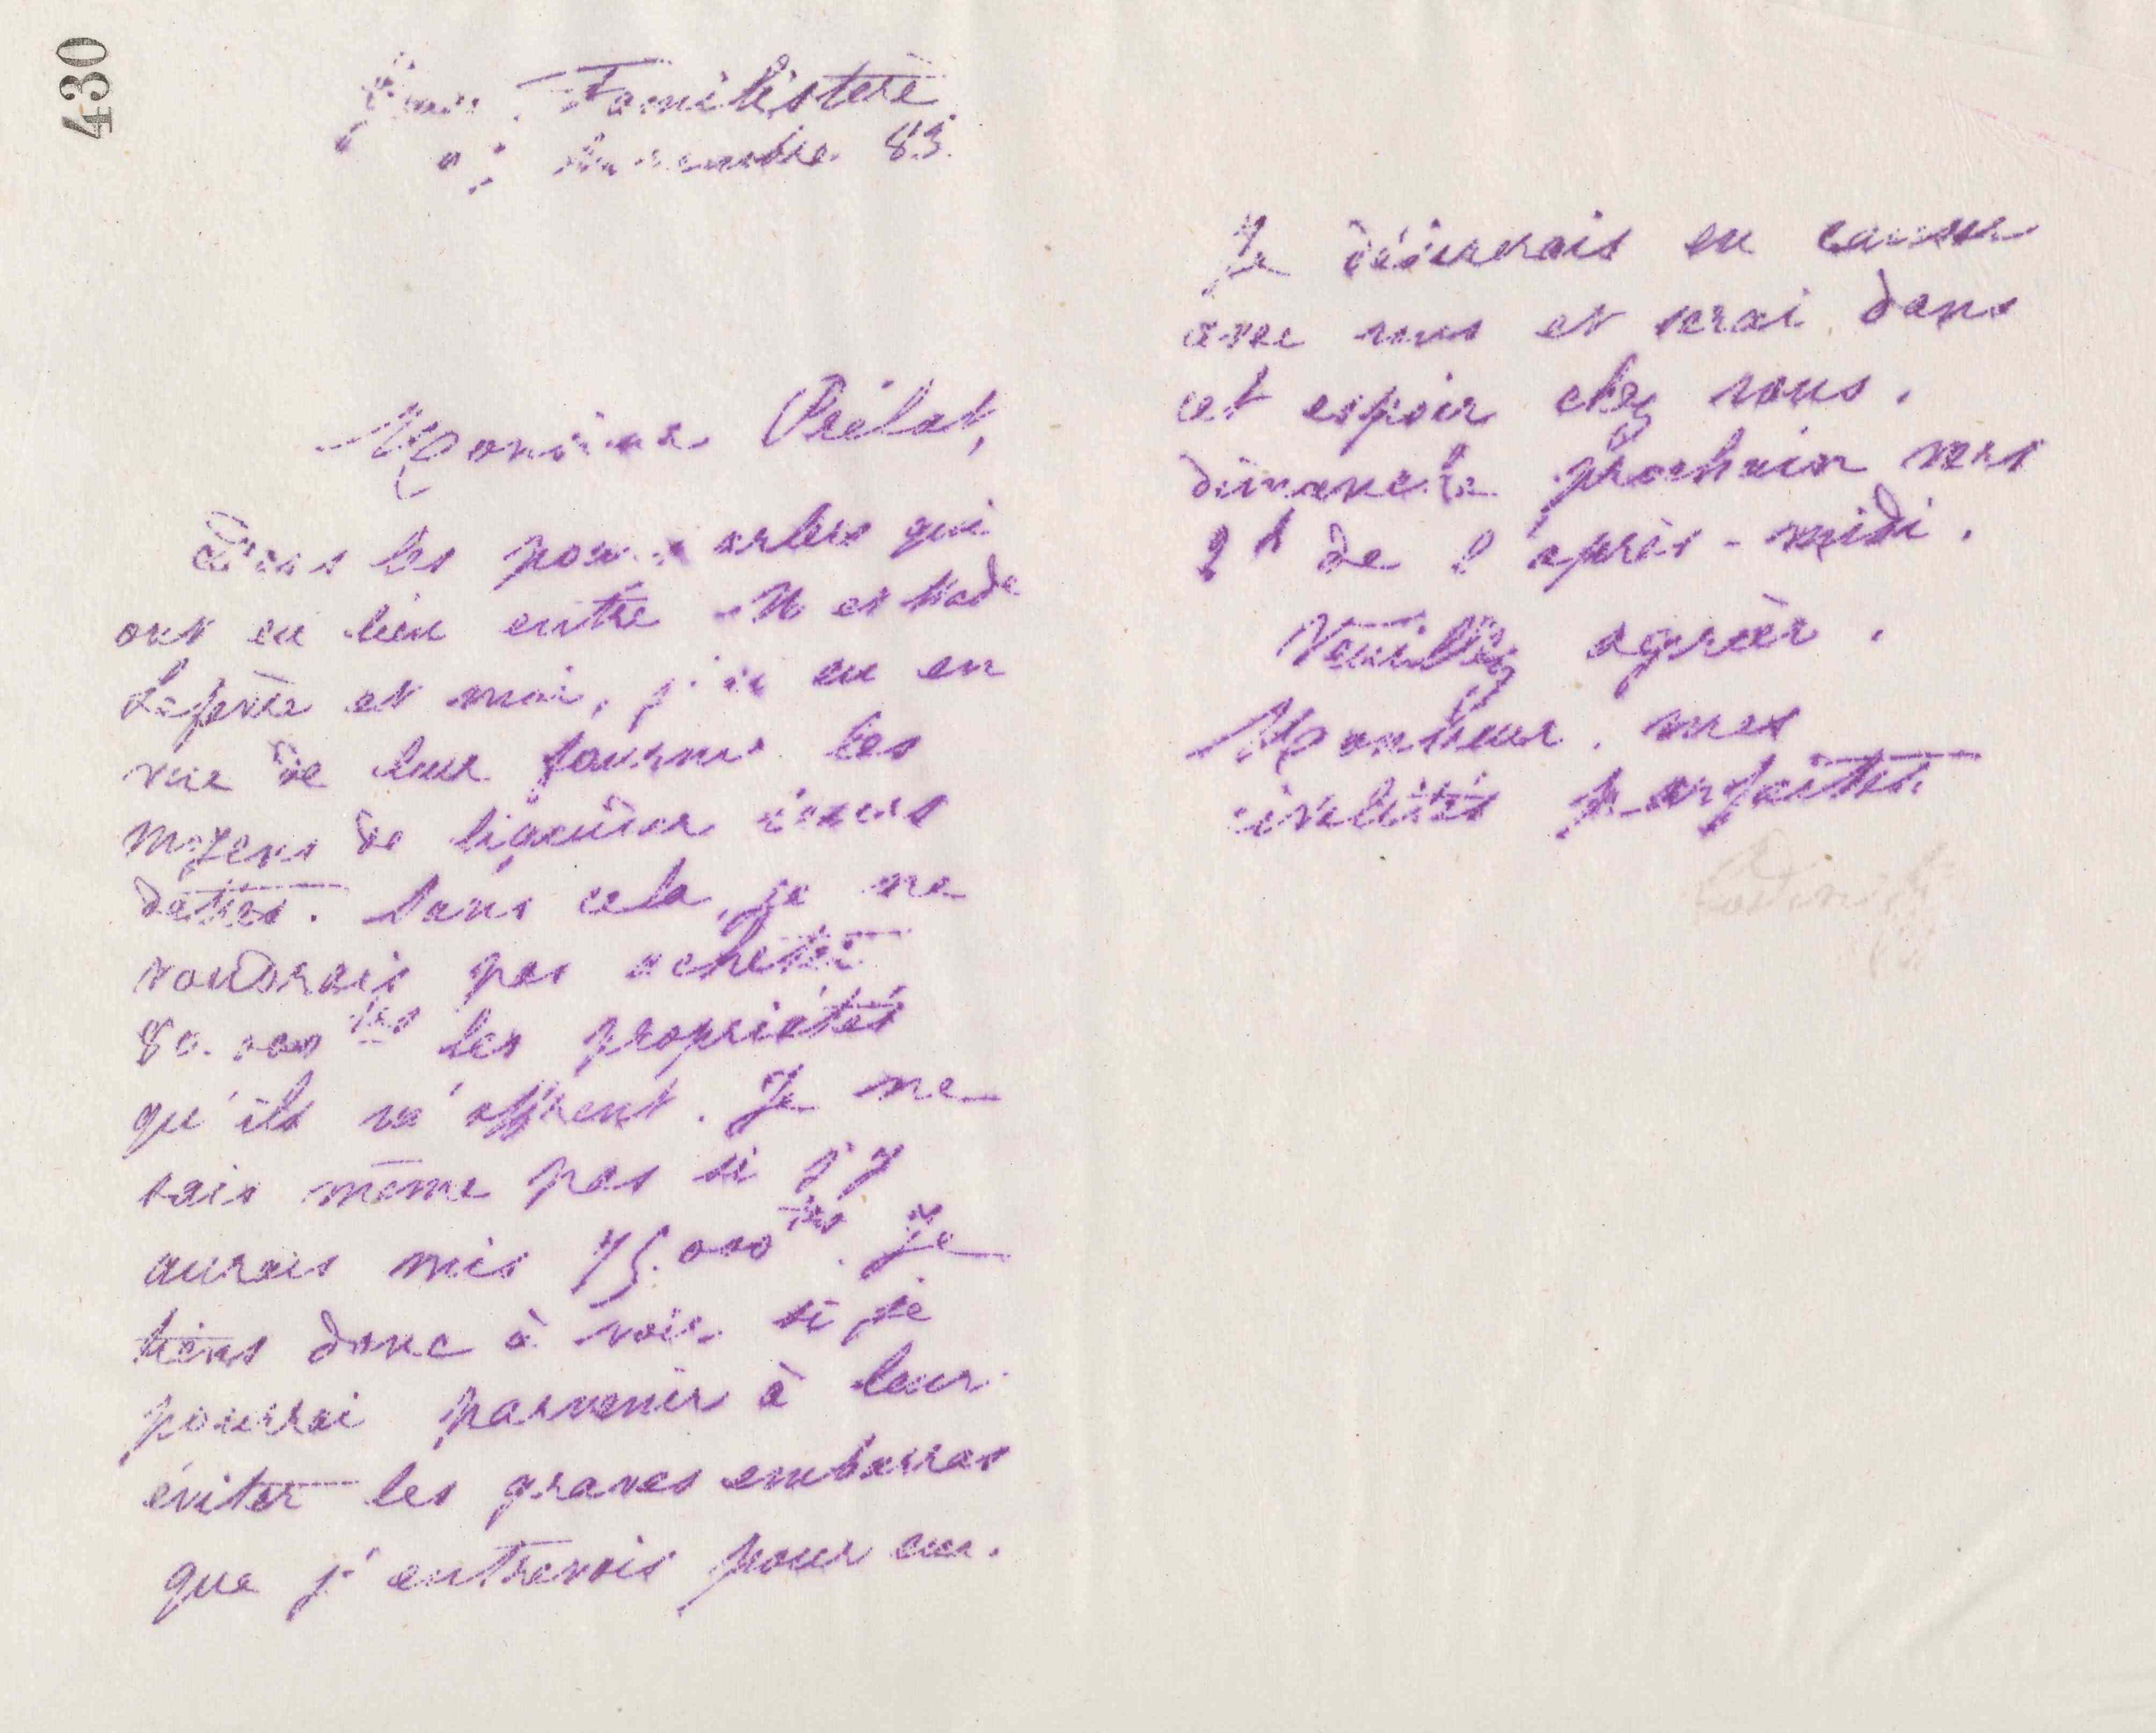 430
Familistère
83
Monsieur Prélat,
Dans les pourparlers qui
ont eu lieu entre M et Made
Lefèvre et moi, j'ai eu en
vue de leur fournir les
moyens de liquider leurs
dettes. Sans cela, je ne
voudrais pas acheter
80.000 frs les propriétés
qu'ils m'offrent. Je ne
sais même pas si j'y
aurais mis 75.000 frs. Je
tiens donc à voir si je
pourrai parvenir à leur
éviter les graves embarras
que j'entrevois pour eux.
Je désirerais en causer
avec vous et serai dans
cet espoir chez vous,
dimanche prochain vers
2h de l'après-midi.
Veuillez agréer,
Monsieur, mes
civilités parfaites
Godin